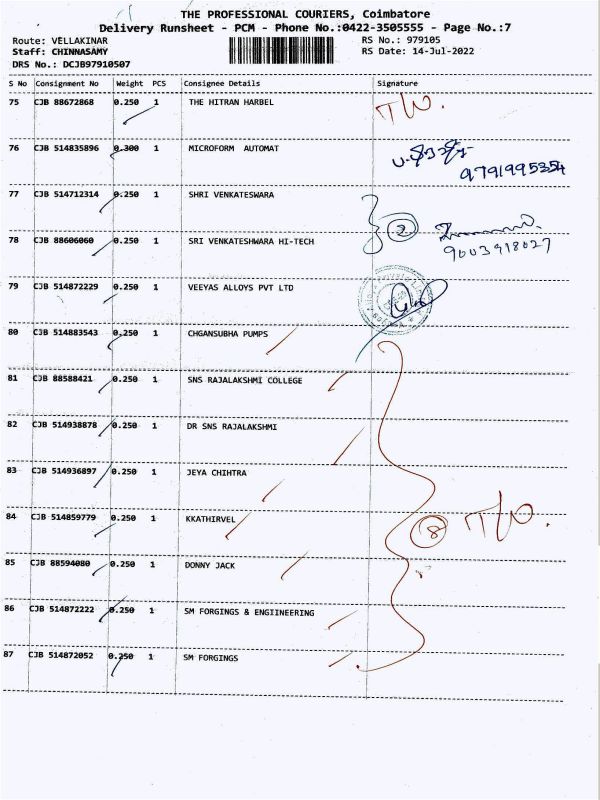 THE PROFESSIONAL COURIERS, Coimbatore
Delivery Runsheet - PCM - Phone No.:0422-3505555 - Page No.:7
Route: VELLAKINAR RS No.: 979105
Staff: CHINNASAMY RS Date: 14-Jul-2022
DRS No.: DCJB97910507
S No Consignment No Weight PCS Consignee Details Signature
75 CJB 88672868 0.250 1 THE HITRAN HARBEL T/W.
76 CJB 514835896 0.300 1 MICROFORM AUTOMAT
9791995354
77 CJB 514712314 0.250 1 SHRI VENKATESWARA
2
78 CJB 88606060 0.250 1 SRI VENKATESHWARA HI-TECH 9003918027
79 CJB 514872229 0.250 1 VEEYAS ALLOYS PVT LTD
80 CJB 514883543 0.250 1 CHGANSUBHA PUMPS
81 CJB 88588421 0.250 1 SNS RAJALAKSHMI COLLEGE
82 CJB 514938878 0.250 1 DR SNS RAJALAKSHMI
83 CJB 514936897 0.250 1 JEYA CHIHTRA
84 CJB 514859779 0.250 1 KKATHIRVEL 8 T/W.
85 CJB 88594080 0.250 1 DONNY JACK
86 CJB 514872222 0.250 1 SM FORGINGS & ENGIINEERING
87 CJB 514872052 0.250 1 SM FORGINGS